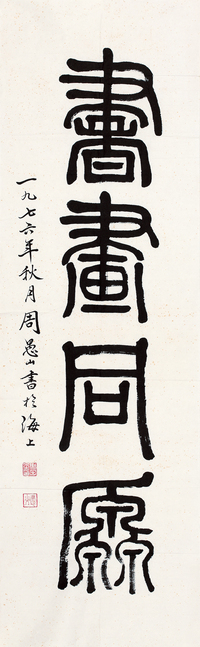 書畫同原
一九七六年秋月周愚山書於海上